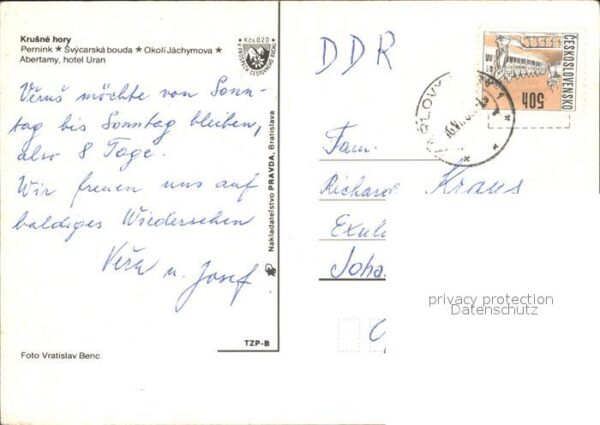 Krušné hory
Pernink ★ Švýcarská bouda ★ Okolí Jáchymova ★
Abertamy, hotel Uran
Kčs 0,20
DDR
ČESKOSLOVENSKO
50h
Věruš möchte von Sonn-
tag bis Sonntag bleiben,
also 8 Tage.
Wir freuen uns auf
baldiges Wiedersehen
Věra u. Josef
Nakladatelství PRAVDA, Bratislava
Fam.
Richard Kraus
Joha
privacy protection
Datenschutz
TZP-B
Foto Vratislav Benc